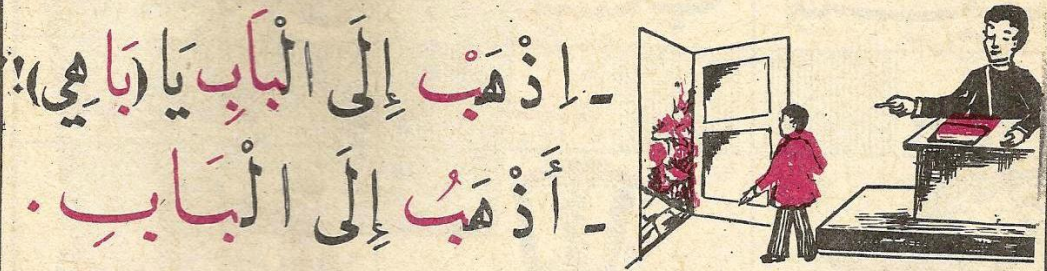 - اِذْهَبْ إِلَى الْبَابِ يَا (بَاهِي)!
- أَذْهَبُ إِلَى الْبَابِ.